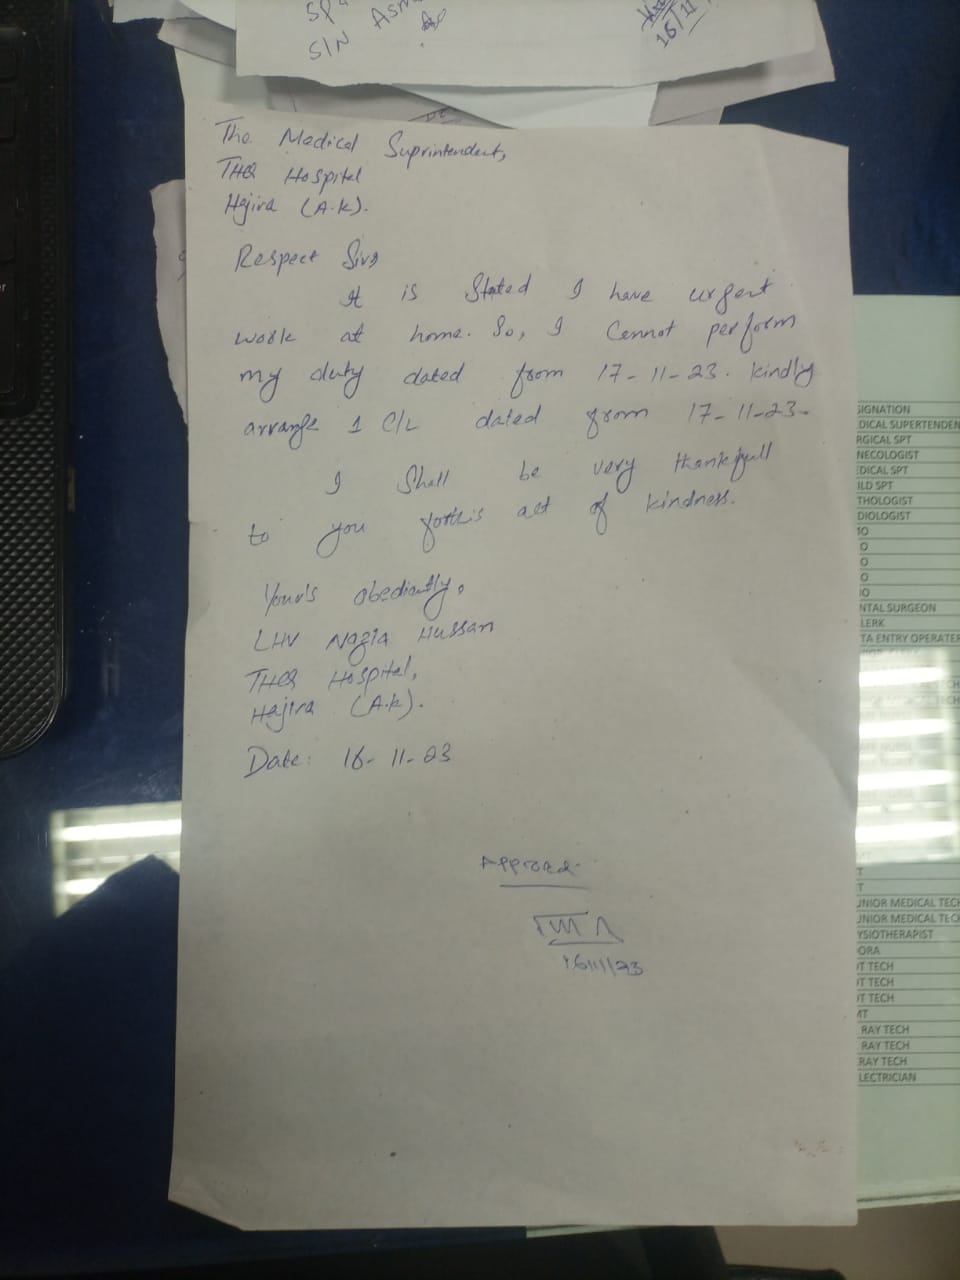 S/N
16/11
The Medical Suprintendent,
THQ Hospital
Hajira (A.k).
Respect Sir,
It is Stated I have urgent
work at home. So, I Cannot perform
my duty dated from 17-11-23. kindly
arrange 1 C/L dated from 17-11-23.
I Shall be very thankfull
to you forthis act of kindness.
Your's obediantly,
LHV Nazia Hussan
THQ Hospital,
Hajira (A.k).
Date: 16-11-23
Approed
16/11/23
SIGNATION
DICAL SUPERTENDEN
RGICAL SPT
NECOLOGIST
EDICAL SPT
ILD SPT
THOLOGIST
DIOLOGIST
IO
O
O
O
IO
NTAL SURGEON
LERK
TA ENTRY OPERATER
T
UNIOR MEDICAL TECH
UNIOR MEDICAL TECH
YSIOTHERAPIST
ORA
OT TECH
OT TECH
OT TECH
MT
RAY TECH
RAY TECH
RAY TECH
LECTRICIAN